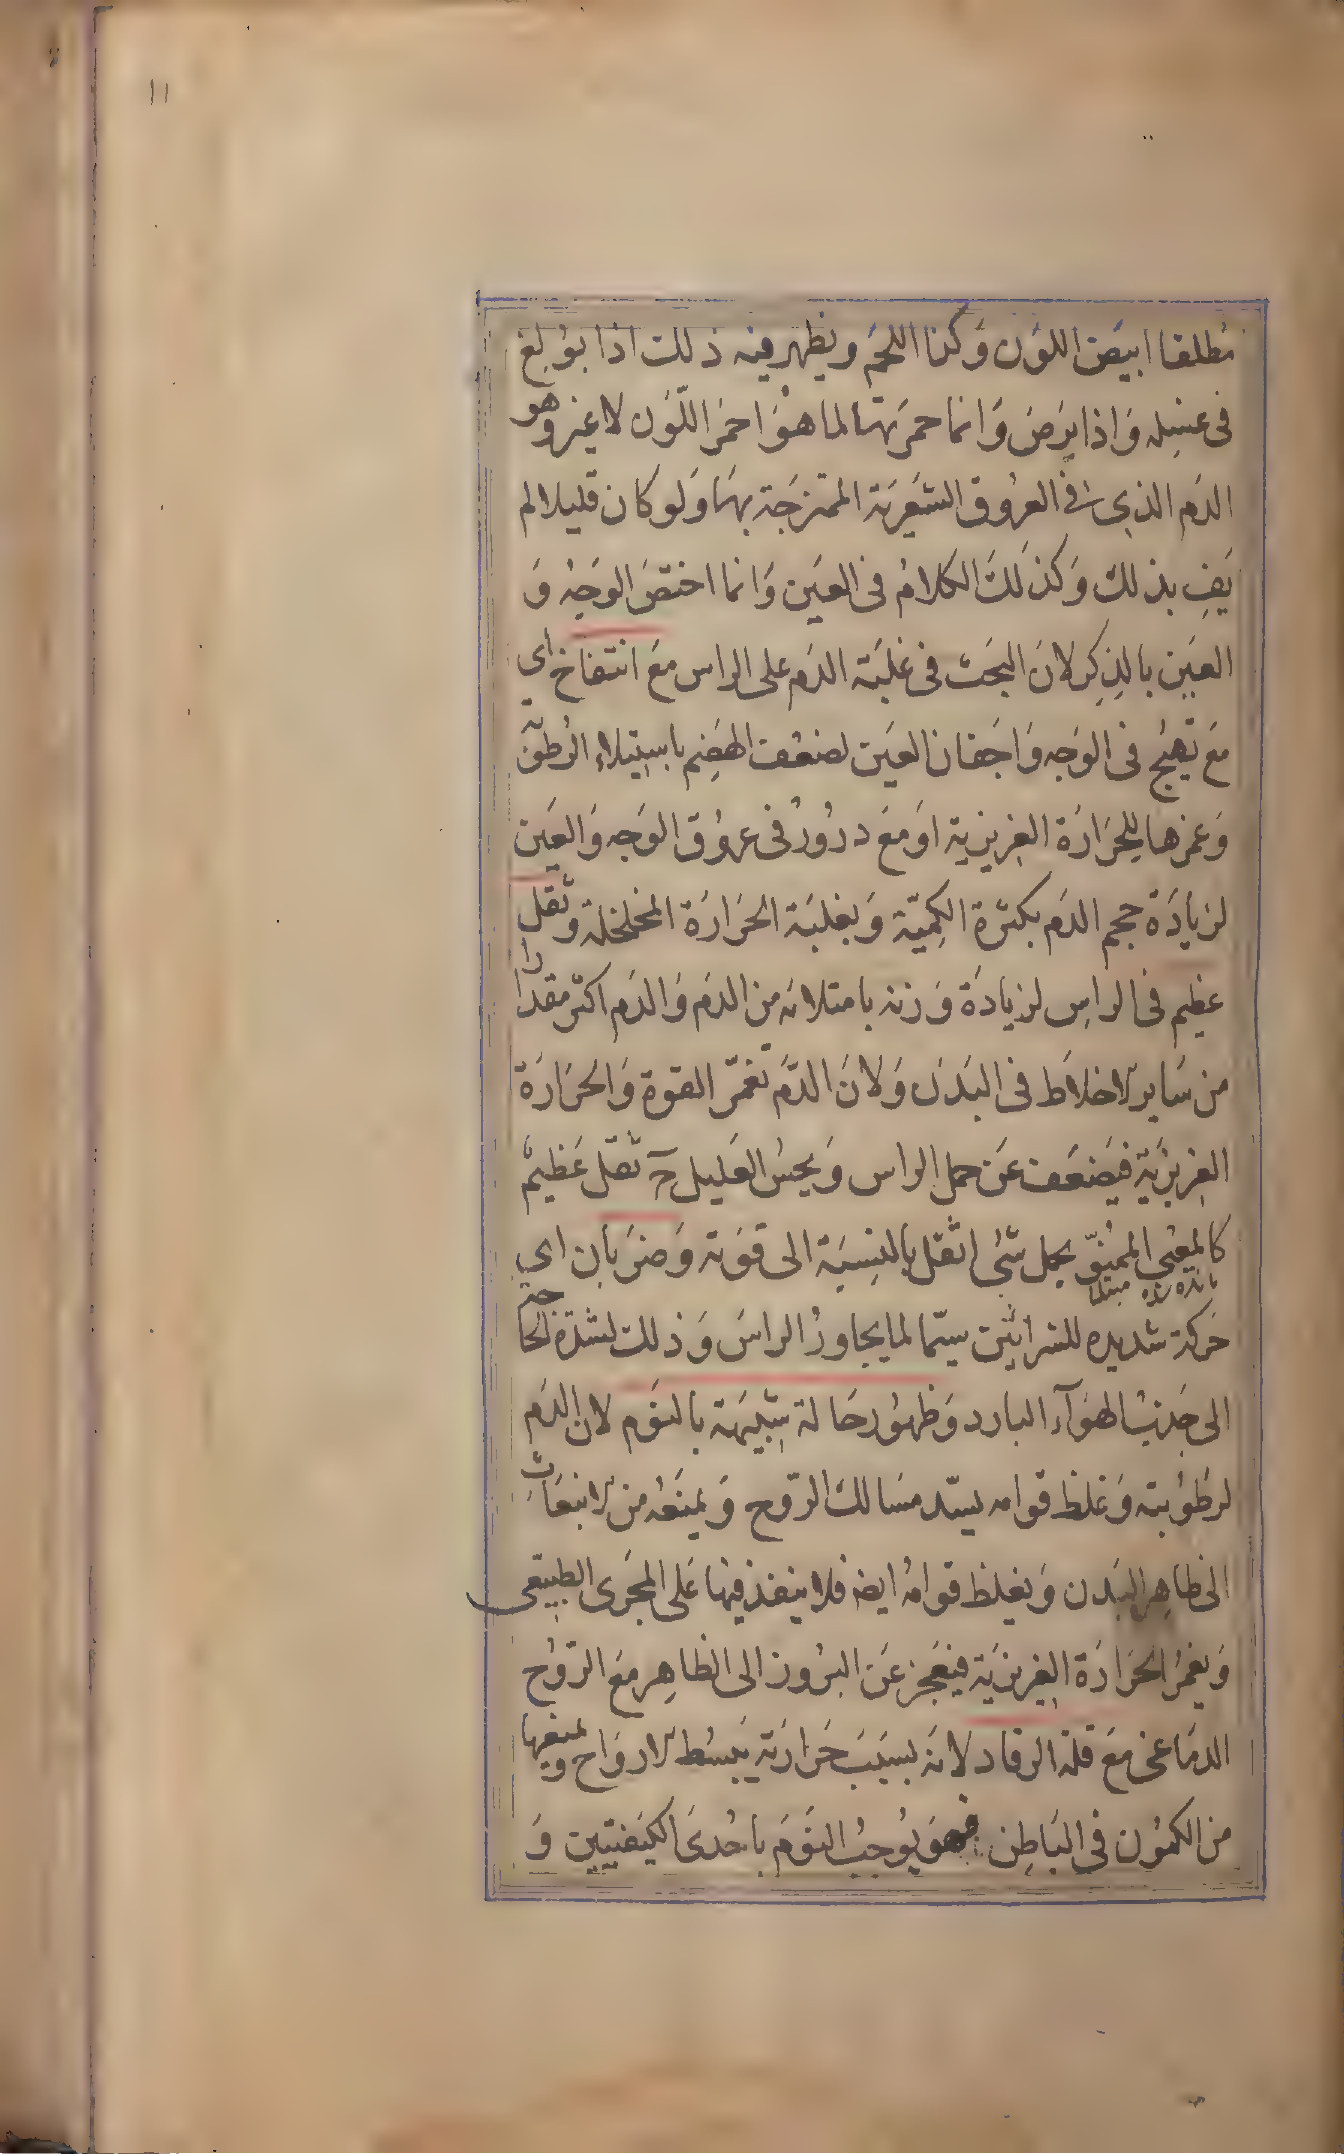 ١١
مطلقا ابيض اللون وكذا اللحم ويظهر فيه ذلك اذا بولغ
فى غسله واذا برص وانما حمرتها لما هو احمر اللون لا غير وهو
الدم الذى فى العروق الشعرية الممتزجة بهما ولو كان قليلا لم
يف بذلك وكذلك الكلام فى العين وانما اختص الوجه و
العين بالذكر لان البحث فى غلبة الدم على الراس مع انتفاخ اى
مع تهيج فى الوجه واجفان العين لضعف الهضم باستيلاء الرطوبة
وغمرها للحرارة الغريزية او مع درور فى عروق الوجه والعين
لزيادة حجم الدم بكثرة الكمية وبغلبة الحرارة المخلخلة وثقل
عظيم فى الراس لزيادة وزنه بامتلائه من الدم والدم اكثر مقدارا
من ساير الاخلاط فى البدن ولان الدم تغمر القوة والحرارة
الغريزية فيضعف عن حمل الراس ويحس العليل ح ثقل عظيم
كالمعيى الممنو بحمل شئ اثقل بالنسبة الى قوته وضربان اى
مانده شده مبتلا
حركة شديده للشرائين سيما لما يجاور الراس وذلك لشدة الحاجة
الى جذب الهوآء البارد وظهور حالة شبيهة بالنوم لان الدم
لرطوبته وغلظ قوامه يسد مسالك الروح ويمنعه من الانبعاث
الى ظاهر البدن ويغلظ قوامه ايضا فلا ينفذ فيها على المجرى الطبيعى
ويغمر الحرارة الغريزية فيعجز عن البروز الى الظاهر مع الروح
الدماغى مع قلة الرقاد لانه بسبب حرارته يبسط الارواح ويمنعها
من الكمون فى الباطن فهو يوجب النوم باحدى الكيفيتين و